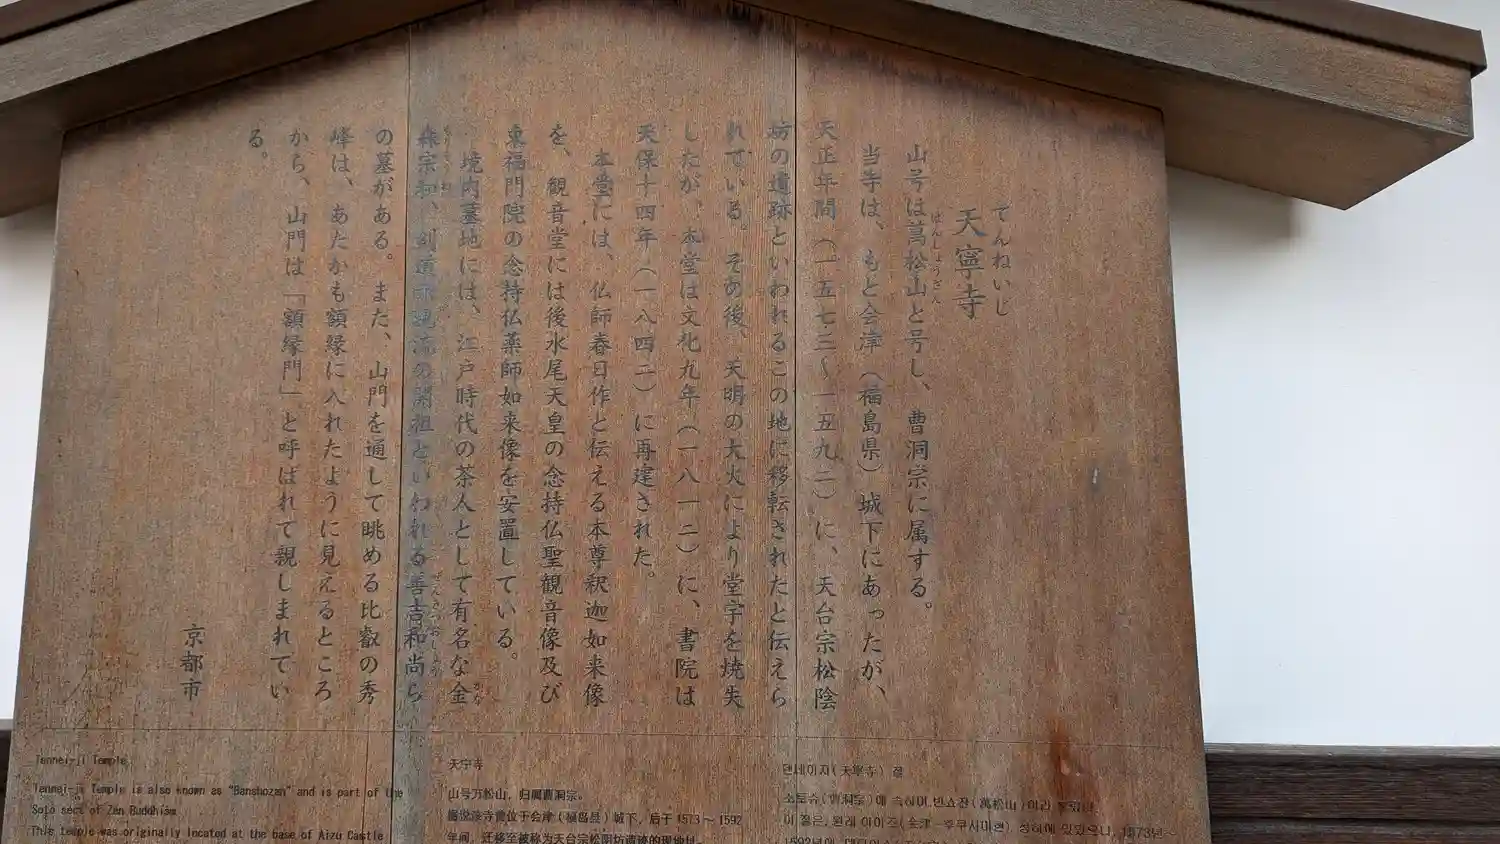 てんねいじ
天寧寺
山号は萬松山と号し、曹洞宗に属する。
ばんしょうざん
当寺は、もと会津（福島県）城下にあったが、
天正年間（一五七三〜一五九二）に、天台宗松陰
坊の遺跡といわれるこの地に移転されたと伝えら
れている。その後、天明の大火により堂宇を焼失
したが、本堂は文化九年（一八一二）に、書院は
天保十四年（一八四三）に再建された。
本堂には、仏師春日作と伝える本尊釈迦如来像
を、観音堂には後水尾天皇の念持仏聖観音像及び
東福門院の念持仏薬師如来像を安置している。
境内墓地には、江戸時代の茶人として有名な金
森宗和、剣道示現流の開祖といわれる善吉和尚ら
ぜんきつおしょう
の墓がある。また、山門を通して眺める比叡の秀
峰は、あたかも額縁に入れたように見えるところ
から、山門は「額縁門」と呼ばれて親しまれてい
る。
京都市
Tennei-ji Temple
Tennei-ji Temple is also known as "Banshozan" and is part of the
Soto sect of Zen Buddhism
This temple was originally located at the base of Aizu Castle
天宁寺
山号万松山，归属曹洞宗。
据说该寺曾位于会津（福岛县）城下，后于1573～1592
年间，迁移至被称为天台宗松阴坊遗迹的现地址。
텐네이지(天寧寺) 절
소토슈(曹洞宗)에 속하며 반쇼잔(萬松山)이라
이 절은, 원래 아이즈(会津-후쿠시마현), 성하에 있었으나, 1573년~